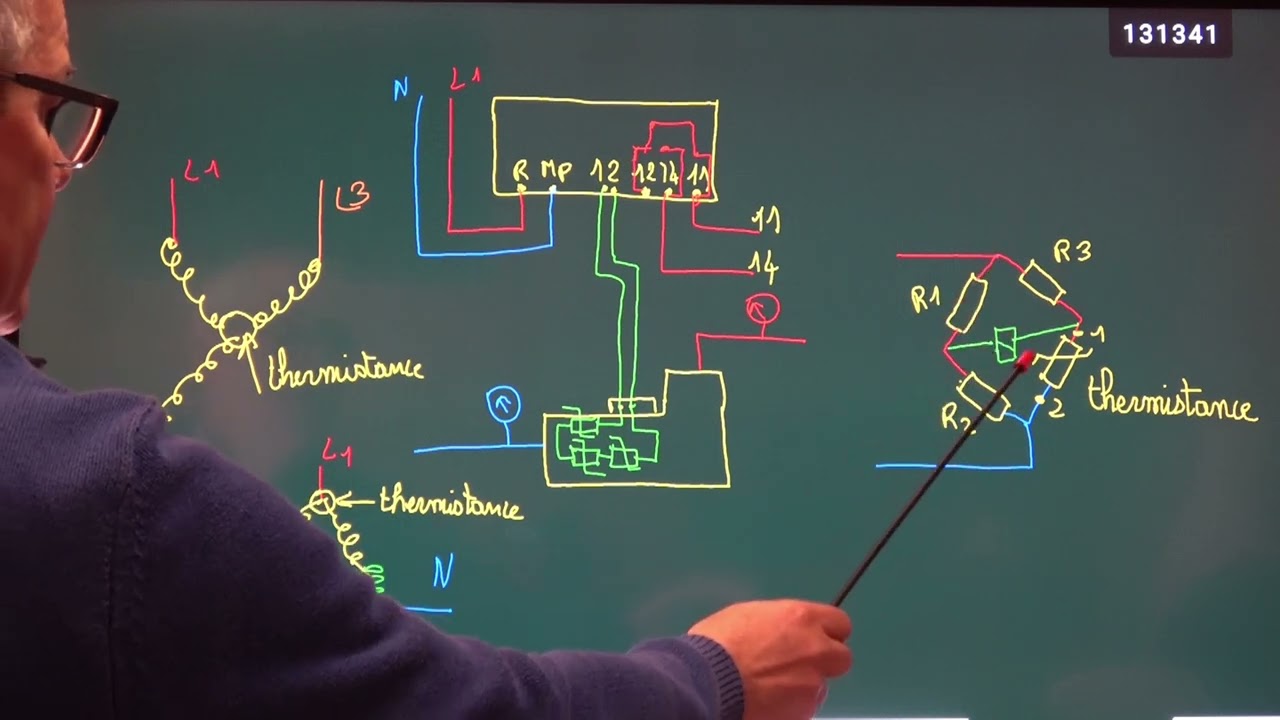 131341
N
L1
R MP 12 12 14 11
11
14
L1
L3
thermistance
L1
thermistance
N
R3
R1
1
R2
2
thermistance